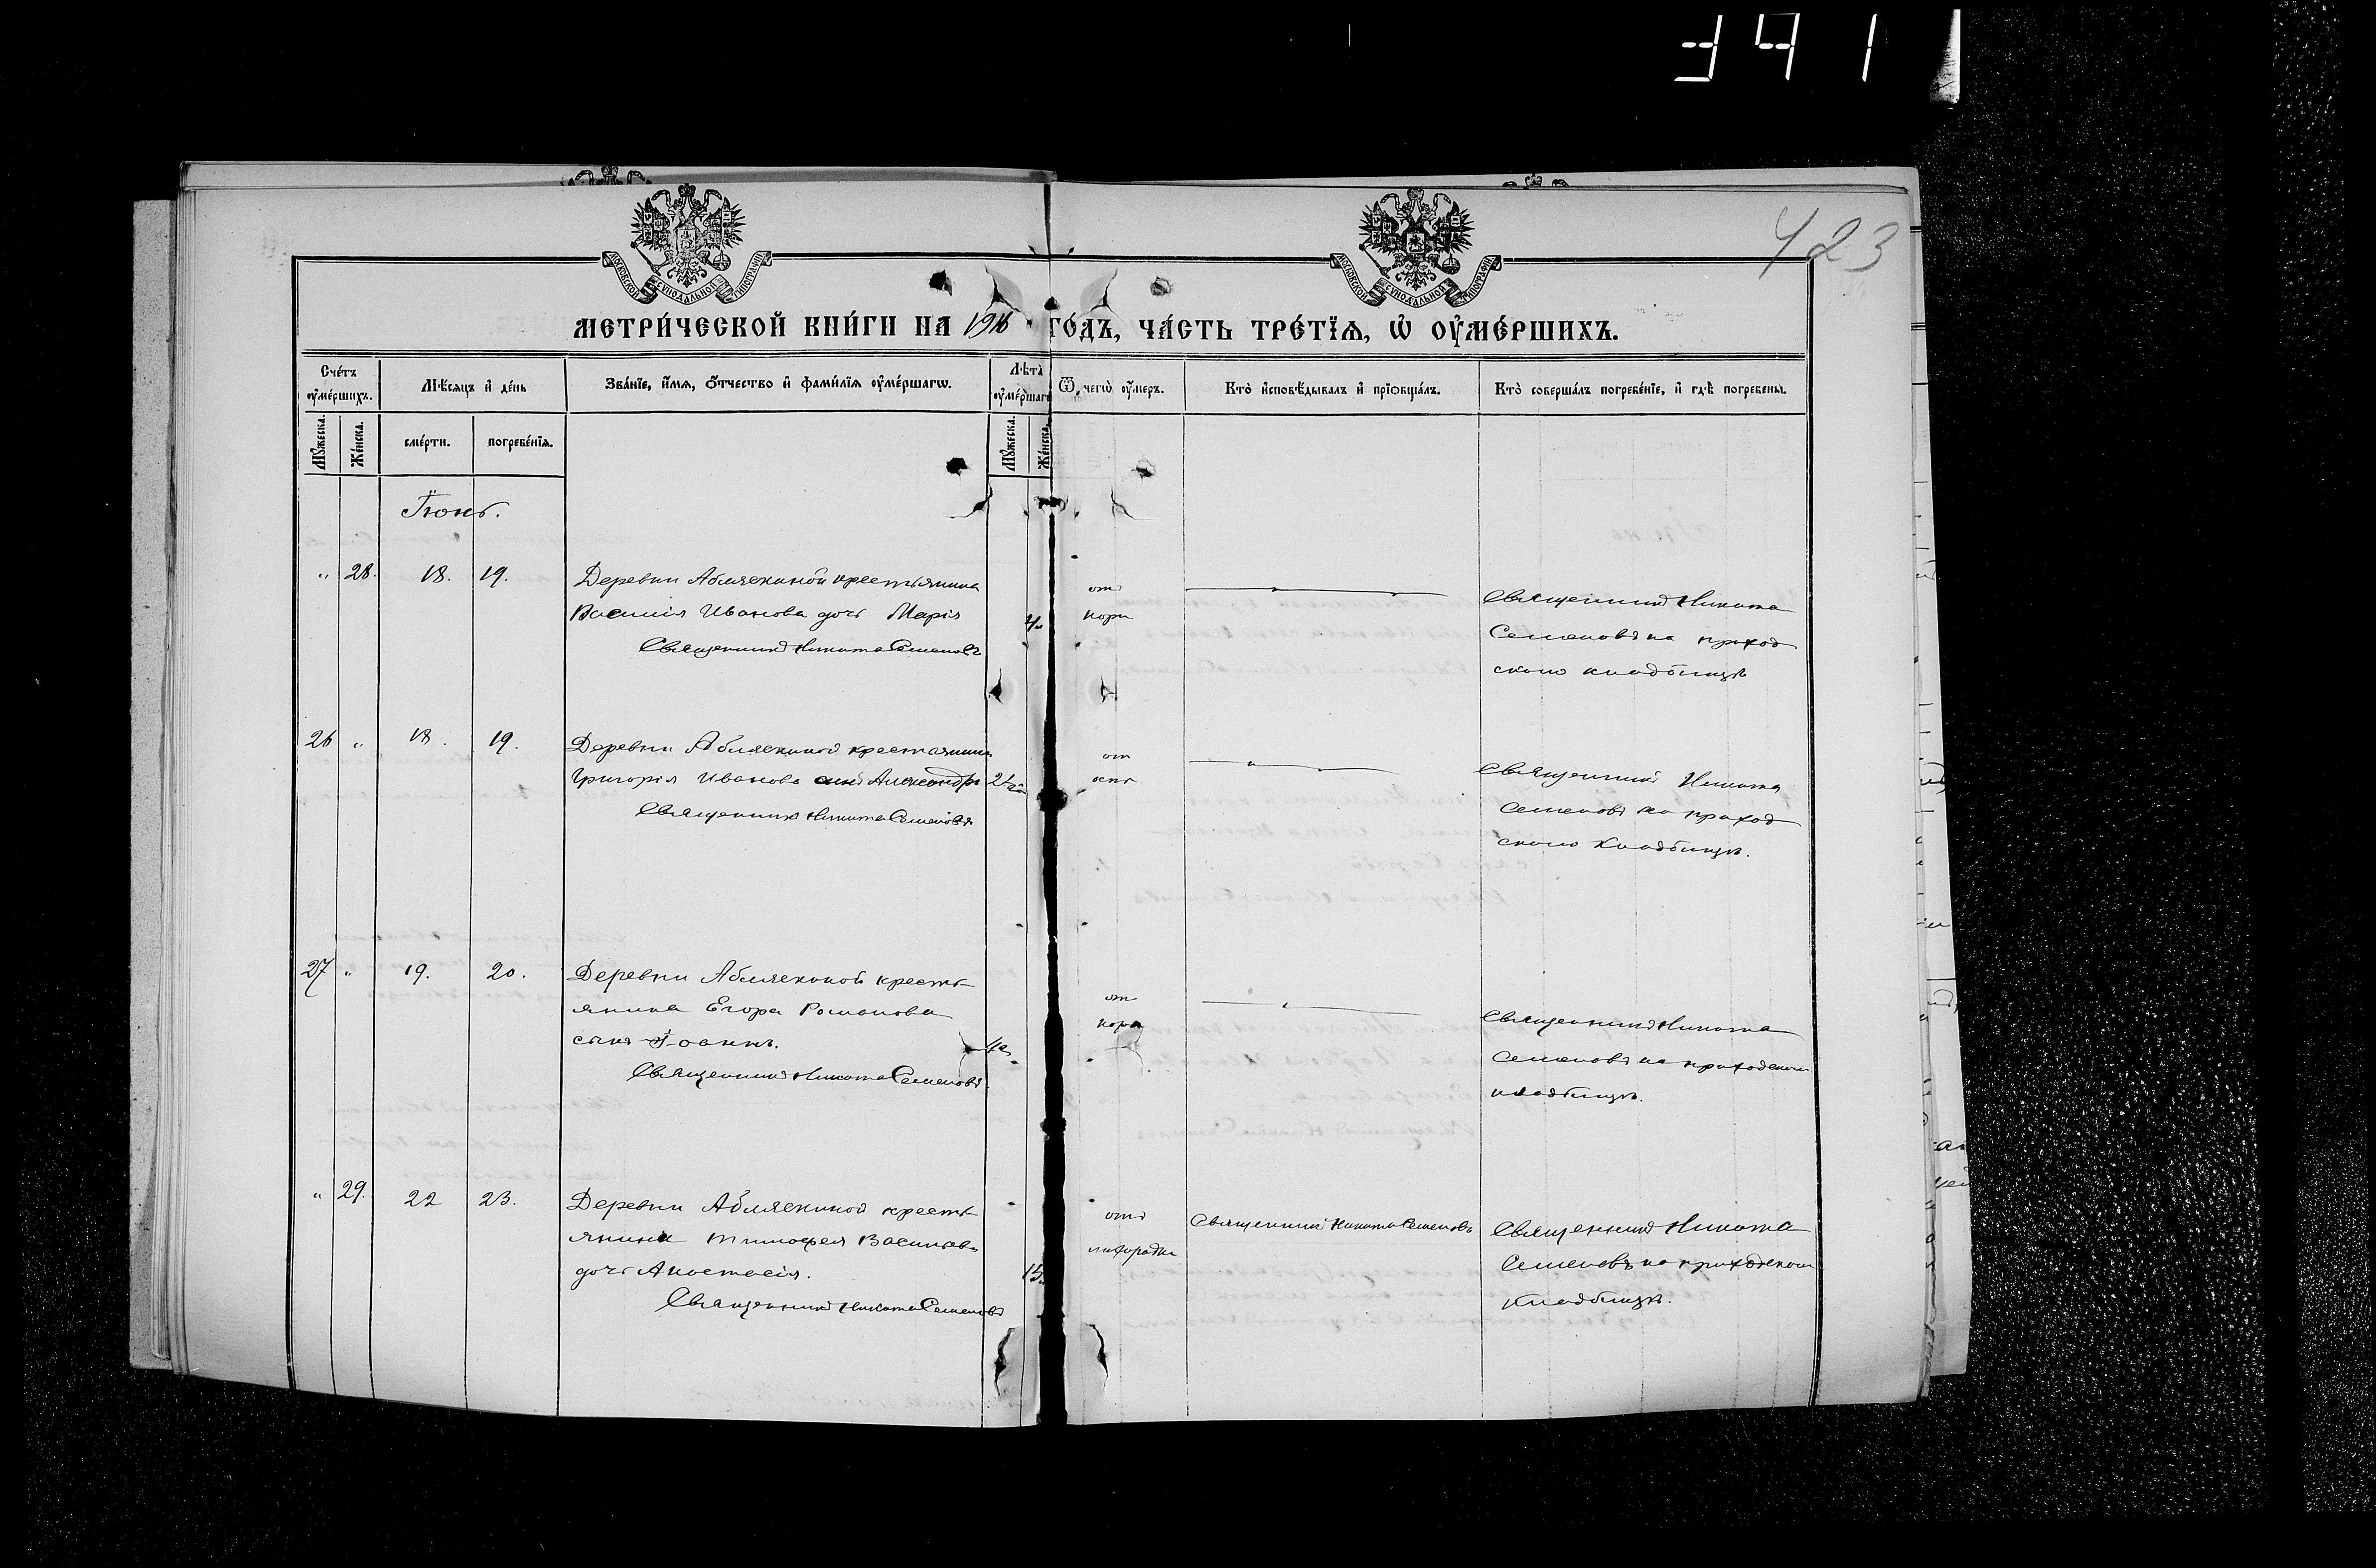 341
423
МОСКОВСКОЙ СѴНОДАЛЬНОЙ ТИПОГРАФІИ
МОСКОВСКОЙ СѴНОДАЛЬНОЙ ТИПОГРАФІИ
МЕТРИ́ЧЕСКОЙ КНИ́ГИ НА ГО́ДЪ, ЧА́СТЬ ТРЕ́ТЇѦ, Ѡ҆ ОУ҆МЕ́РШИХЪ.
Счéтъ оу҆мéршихъ.
Мѣ́сѧцъ и҆ дéнь
Звáнїе, и҆́мѧ, ѻ҆́тчество и҆ фами́лїѧ оу҆мéршагѡ.
Лѣтà оу҆мéршагѡ
Ѿ чегѡ̀ оу҆́меръ.
Ктò и҆сповѣ́дывалъ и҆ прїѡбщáлъ.
Ктò совершáлъ погребéнїе, и҆ гдѣ̀ погребены̀.
Мꙋ́жеска.
Жéнска.
смéрти.
погребéнїѧ.
Мꙋ́жеска.
Жéнска.
Іюнь.
" 28. 18. 19.
Деревни Аблязкиной крестьянина
Василія Иванова дочь Марія
4.
Священникъ Никита Семеновъ
отъ
кори
Священникъ Никита
Семеновъ на приход
скомъ кладбищѣ
26 " 18. 19.
Деревни Аблязкиной крестьянина
Григорія Иванова сынъ Александръ
Священникъ Никита Семеновъ
от
оспы
Священникъ Никита
Семеновъ на приход
скомъ кладбищѣ.
27 " 19. 20.
Деревни Аблязкиной кресть
янина Егора Романова
сынъ Іоаннъ.
Священникъ Никита Семеновъ.
от
кори
Священникъ Никита
Семеновъ на приходскомъ
кладбищѣ.
" 29. 22 23.
Деревни Аблязкиной кресть
янина Тимофея Васильева
дочь Анастасія.
15.
Священникъ Никита Семеновъ
отъ
лихорадки
Священникъ Никита Семеновъ
Священникъ Никита
Семеновъ на приходскомъ
кладбищѣ.